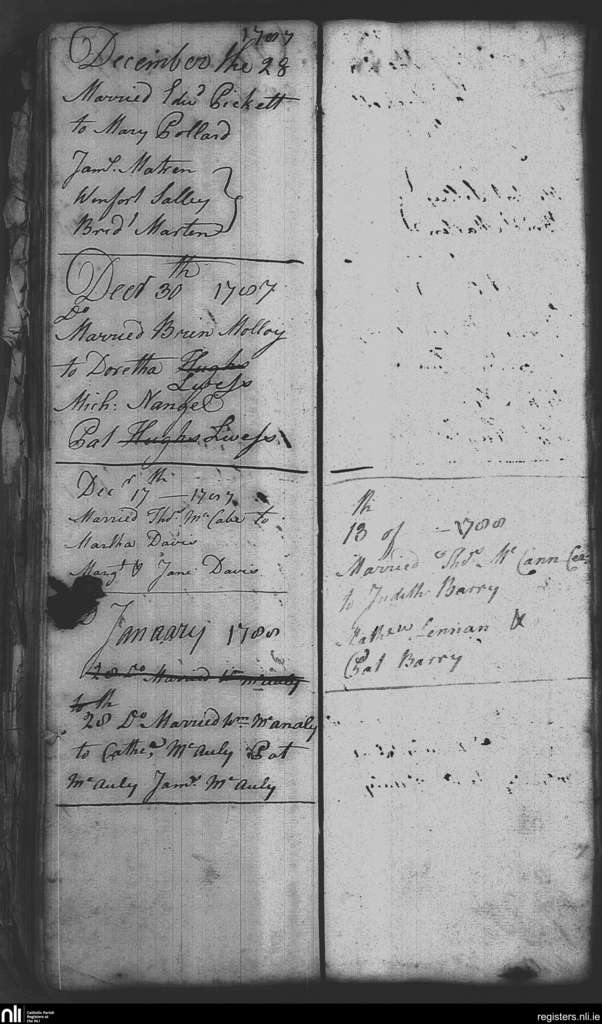 1787
December the 28
Married Edwd Pickett
to Mary Pollard
Jams. Matren
Winfort Salley
Bridt Marten
Decr 30th 1787
Do
Married Brien Molloy
to Doretha Hughs
Livess
Mich: Nangel
Pat Hughs Livess
Decr 17th — 1787
Married Thos. McCabe to
Martha Davis
Margt & Jane Davis
January 1788
28 Do Married Wm McAuly
to
28th Do Married Wm McAnaly
to Cathe. McAuly Pat
McAuly Jams. McAuly
13th of — 1788
Married Thos. McCann
to Judith Barry
Mathew Lennan &
Pat Barry
nli
Catholic Parish
Registers at
the NLI
registers.nli.ie